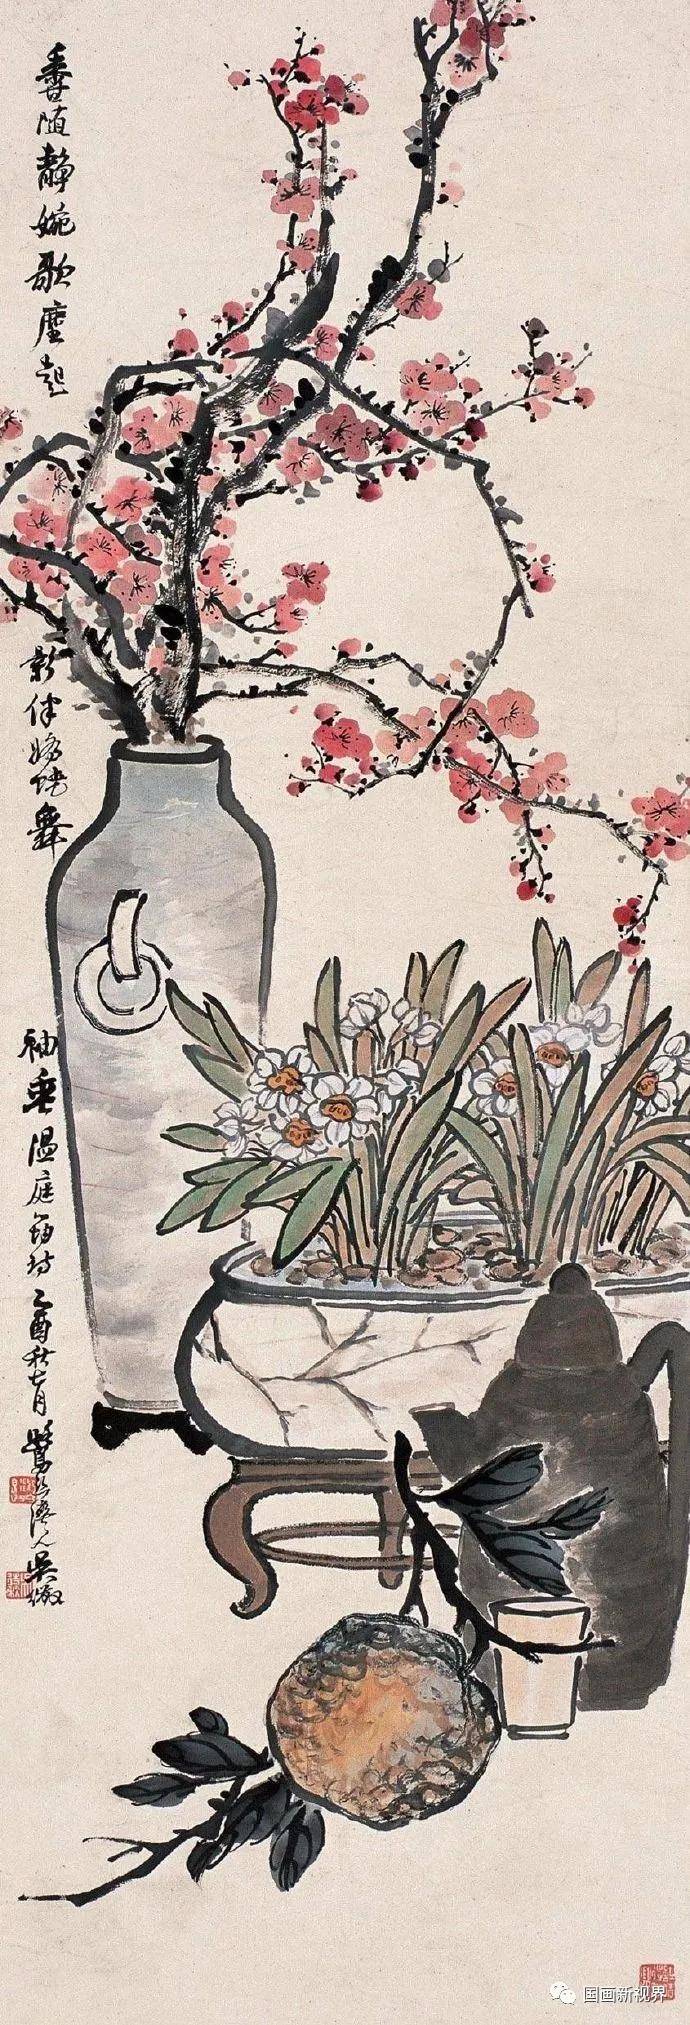 香随静婉歌尘起
影伴娇娆舞
袖垂温庭筠诗乙酉秋七月鬻画济人吴徵
国画新视界